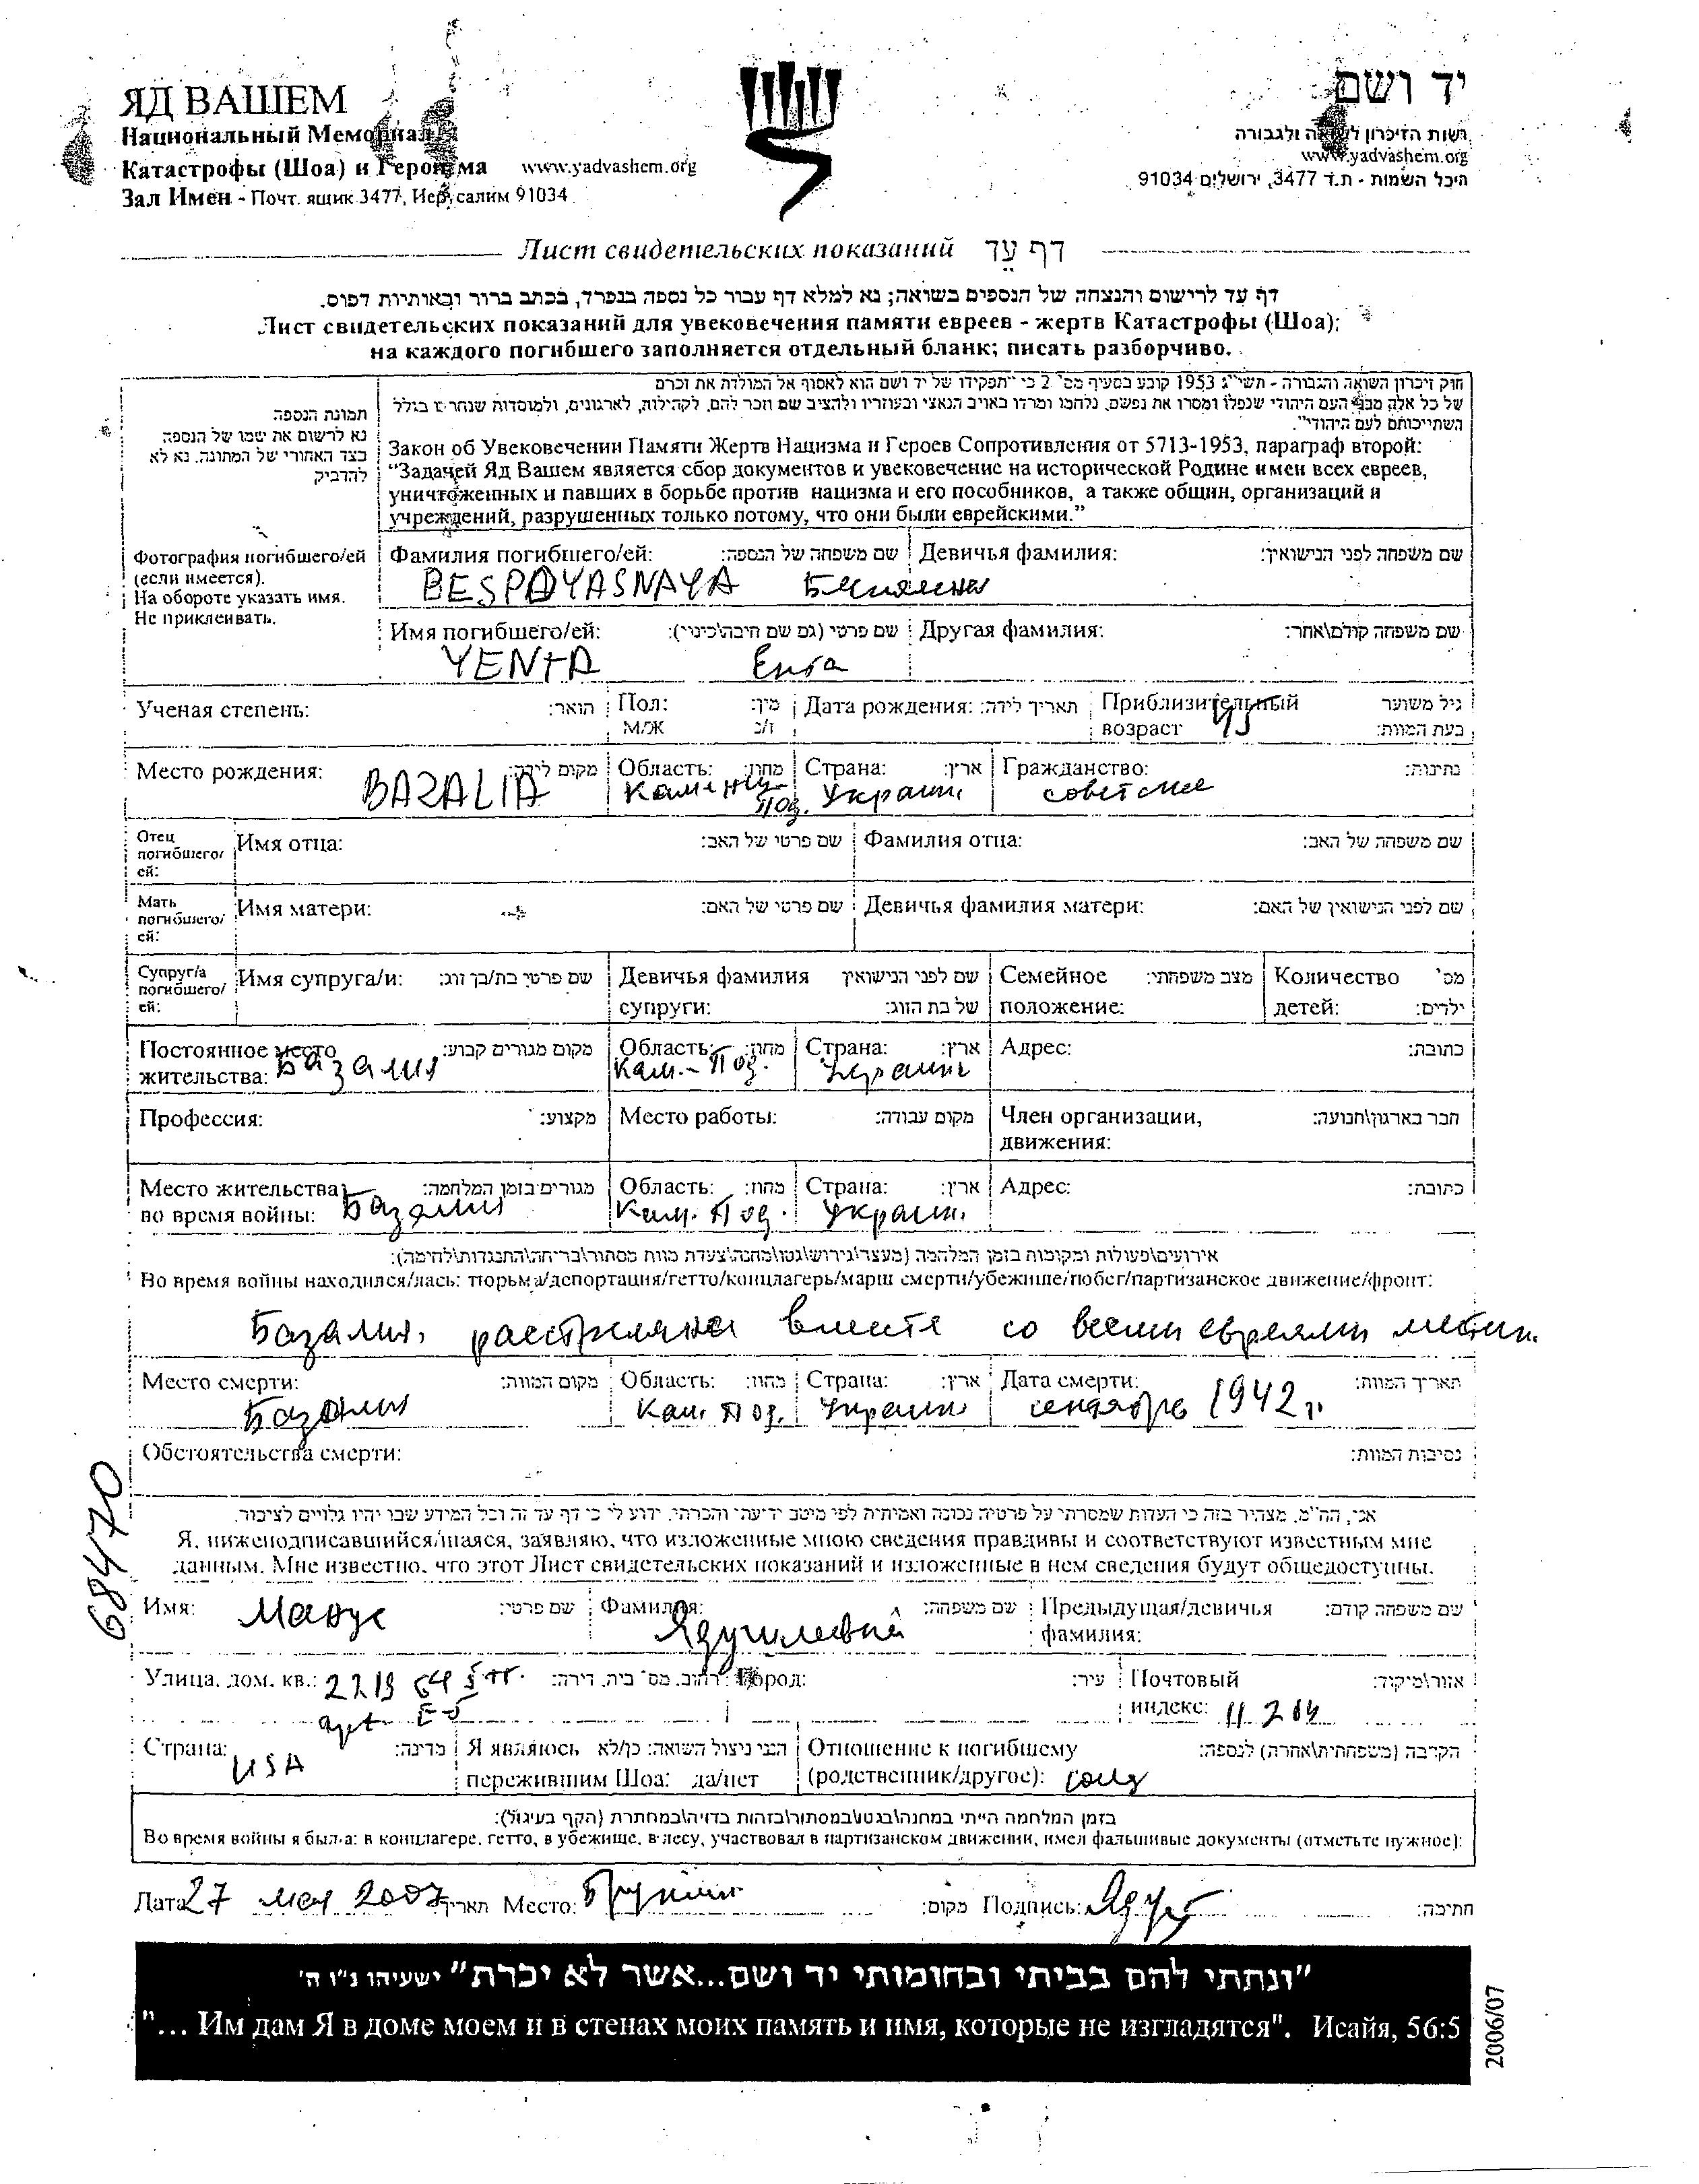 ЯД ВАШЕМ
Национальный Мемориал
Катастрофы (Шоа) и Героизма www.yadvashem.org
Зал Имен - Почт. ящик 3477, Иерусалим 91034
יד ושם
רשות הזיכרון לשואה ולגבורה
www.yadvashem.org
היכל השמות - ת.ד 3477, ירושלים 91034
Лист свидетельских показаний דף עֵד
דף עד לרישום והנצחה של הנספים בשואה; נא למלא דף עבור כל נספה בנפרד, בכתב ברור ובאותיות דפוס.
Лист свидетельских показаний для увековечения памяти евреев - жертв Катастрофы (Шоа);
на каждого погибшего заполняется отдельный бланк; писать разборчиво.
תמונת הנספה
נא לרשום את שמו של הנספה
בצד האחורי של התמונה. נא לא
להדביק
Фотография погибшего/ей
(если имеется).
На обороте указать имя.
Не приклеивать.
חוק זיכרון השואה והגבורה - תשי"ג 1953 קובע בסעיף מס' 2 כי "תפקידו של יד ושם הוא לאסוף אל המולדת את זכרם
של כל אלה מבני העם היהודי שנפלו ומסרו את נפשם, נלחמו ומרדו באויב הנאצי ובעוזריו ולהציב שם וזכר להם, לקהילות, לארגונים, ולמוסדות שנחרבו בגלל
השתייכותם לעם היהודי".
Закон об Увековечении Памяти Жертв Нацизма и Героев Сопротивления от 5713-1953, параграф второй:
"Задачей Яд Вашем является сбор документов и увековечение на исторической Родине имен всех евреев,
уничтоженных и павших в борьбе против нацизма и его пособников, а также общин, организаций и
учреждений, разрушенных только потому, что они были еврейскими."
Фамилия погибшего/ей: שם משפחה של הנספה: Девичья фамилия: שם משפחה לפני הנישואין:
BESPOYASNAYA
Имя погибшего/ей: שם פרטי (גם שם חיבה\כינוי): Другая фамилия: שם משפחה קודם\אחר:
YENTA Ента
Ученая степень: תואר: Пол: מין: Дата рождения: תאריך לידה: Приблизительный גיל משוער
М/Ж ז/נ возраст 45 בעת המוות:
Место рождения: מקום לידה: Область: מחוז: Страна: ארץ: Гражданство: נתינות:
BAZALIA Каменец Под. Украина советское
Отец
погибшего/
ей:
Имя отца: שם פרטי של האב: Фамилия отца: שם משפחה של האב:
Мать
погибшего/
ей:
Имя матери: שם פרטי של האם: Девичья фамилия матери: שם לפני הנישואין של האם:
Супруг/а
погибшего/
ей:
Имя супруга/и: שם פרטי בת/בן זוג: Девичья фамилия שם לפני הנישואין Семейное מצב משפחתי: Количество מס'
супруги: של בת הזוג: положение: детей: ילדים:
Постоянное место מקום מגורים קבוע: Область: מחוז: Страна: ארץ: Адрес: כתובת:
жительства: Базалия Кам.-Под. Украина
Профессия: מקצוע: Место работы: מקום עבודה: Член организации, חבר בארגון\תנועה:
движения:
Место жительства מגורים בזמן המלחמה: Область: מחוז: Страна: ארץ: Адрес: כתובת:
во время войны: Базалия Кам. Под. Украина
אירועים\פעולות ומקומות בזמן המלחמה (מעצר\גירוש\גטו\מחנה\צעדת מוות מסתור\בריחה\התנגדות\לחימה):
Во время войны находился/лась: тюрьма/депортация/гетто/концлагерь/марш смерти/убежище/побег/партизанское движение/фронт:
Базалия, расстреляна вместе со всеми евреями местечк.
Место смерти: מקום המוות: Область: מחוז: Страна: ארץ: Дата смерти: תאריך המוות:
Базалия Кам. Под. Украина сентябрь 1942 г.
Обстоятельства смерти: נסיבות המוות:
68470
אני, הח"מ, מצהיר בזה כי העדות שמסרתי על פרטיה נכונה ואמיתית לפי מיטב ידיעתי והכרתי. ידוע לי כי דף עד זה וכל המידע שבו יהיו גלויים לציבור.
Я, нижеподписавшийся/шаяся, заявляю, что изложенные мною сведения правдивы и соответствуют известным мне
данным. Мне известно, что этот Лист свидетельских показаний и изложенные в нем сведения будут общедоступны.
Имя: שם פרטי: Фамилия: שם משפחה: Предыдущая/девичья שם משפחה קודם:
Манус фамилия:
Улица, дом, кв.: 2219 64 st. רחוב, מס' בית, דירה: Город: עיר: Почтовый אזור\מיקוד:
apt. E5 индекс: 11204
Страна: מדינה: Я являюсь הנני ניצול השואה: כן/לא Отношение к погибшему הקרבה (משפחתית\אחרת) לנספה:
USA пережившим Шоа: да/нет (родственник/другое):
בזמן המלחמה הייתי במחנה\בגטו\במסתור\בזהות בדויה\במחתרת (הקף בעיגול):
Во время войны я был-а: в концлагере, гетто, в убежище, в лесу, участвовал в партизанском движении, имел фальшивые документы (отметьте нужное):
Дата 27 мая 2007 תאריך Место: Бруклин מקום: Подпись: חתימה:
"ונתתי להם בביתי ובחומותי יד ושם...אשר לא יכרת" ישעיהו נ"ו ה'
"... Им дам Я в доме моем и в стенах моих память и имя, которые не изгладятся". Исайя, 56:5
2006/07